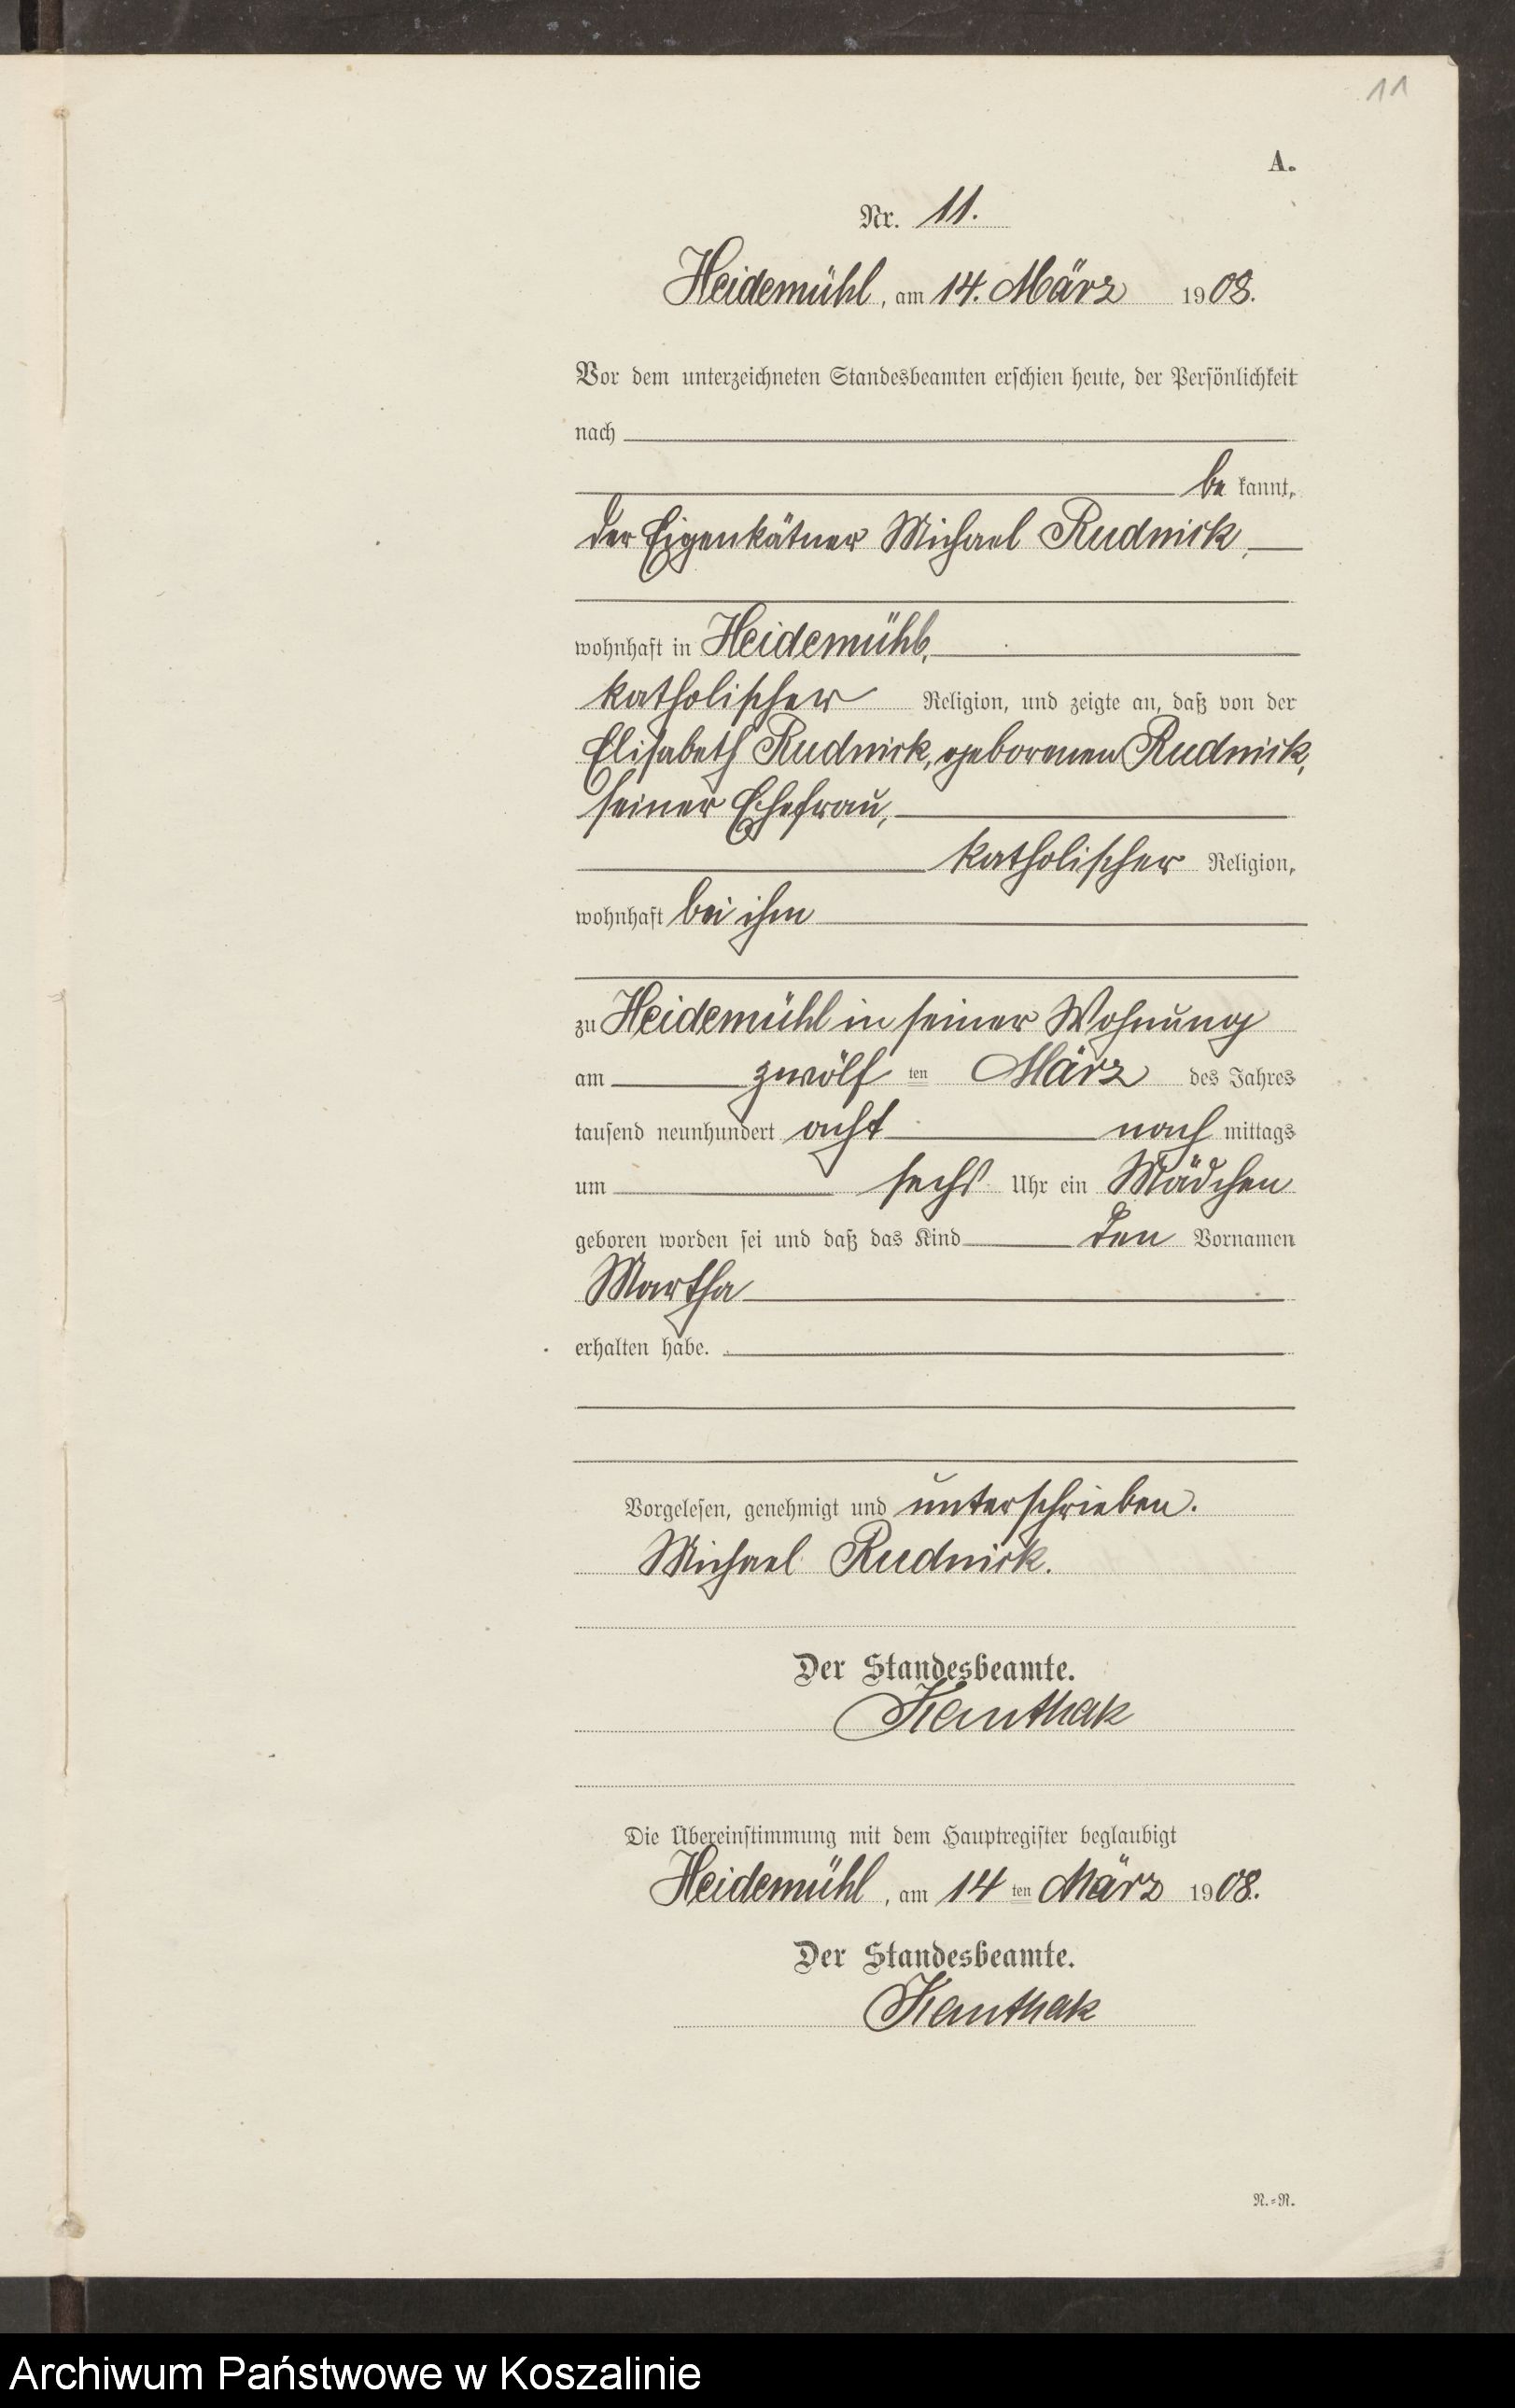 11
A.
Nr. 11.
Heidemühl, am 14. März 1908.
Vor dem unterzeichneten Standesbeamten erschien heute, der Persönlichkeit
nach
be kannt,
der Eigenkätner Michael Rudnick,
wohnhaft in Heidemühl,
katholischer Religion, und zeigte an, daß von der
Elisabeth Rudnick, geborenen Rudnick,
seiner Ehefrau,
katholischer Religion,
wohnhaft bei ihm
zu Heidemühl in seiner Wohnung
am zwölf ten März des Jahres
tausend neunhundert acht nach mittags
um sechs Uhr ein Mädchen
geboren worden sei und daß das Kind den Vornamen
Martha
erhalten habe.
Vorgelesen, genehmigt und unterschrieben.
Michael Rudnick.
Der Standesbeamte.
Kanthak
Die Übereinstimmung mit dem Hauptregister beglaubigt
Heidemühl, am 14 ten März 1908.
Der Standesbeamte.
Kanthak
N.=R.
Archiwum Państwowe w Koszalinie